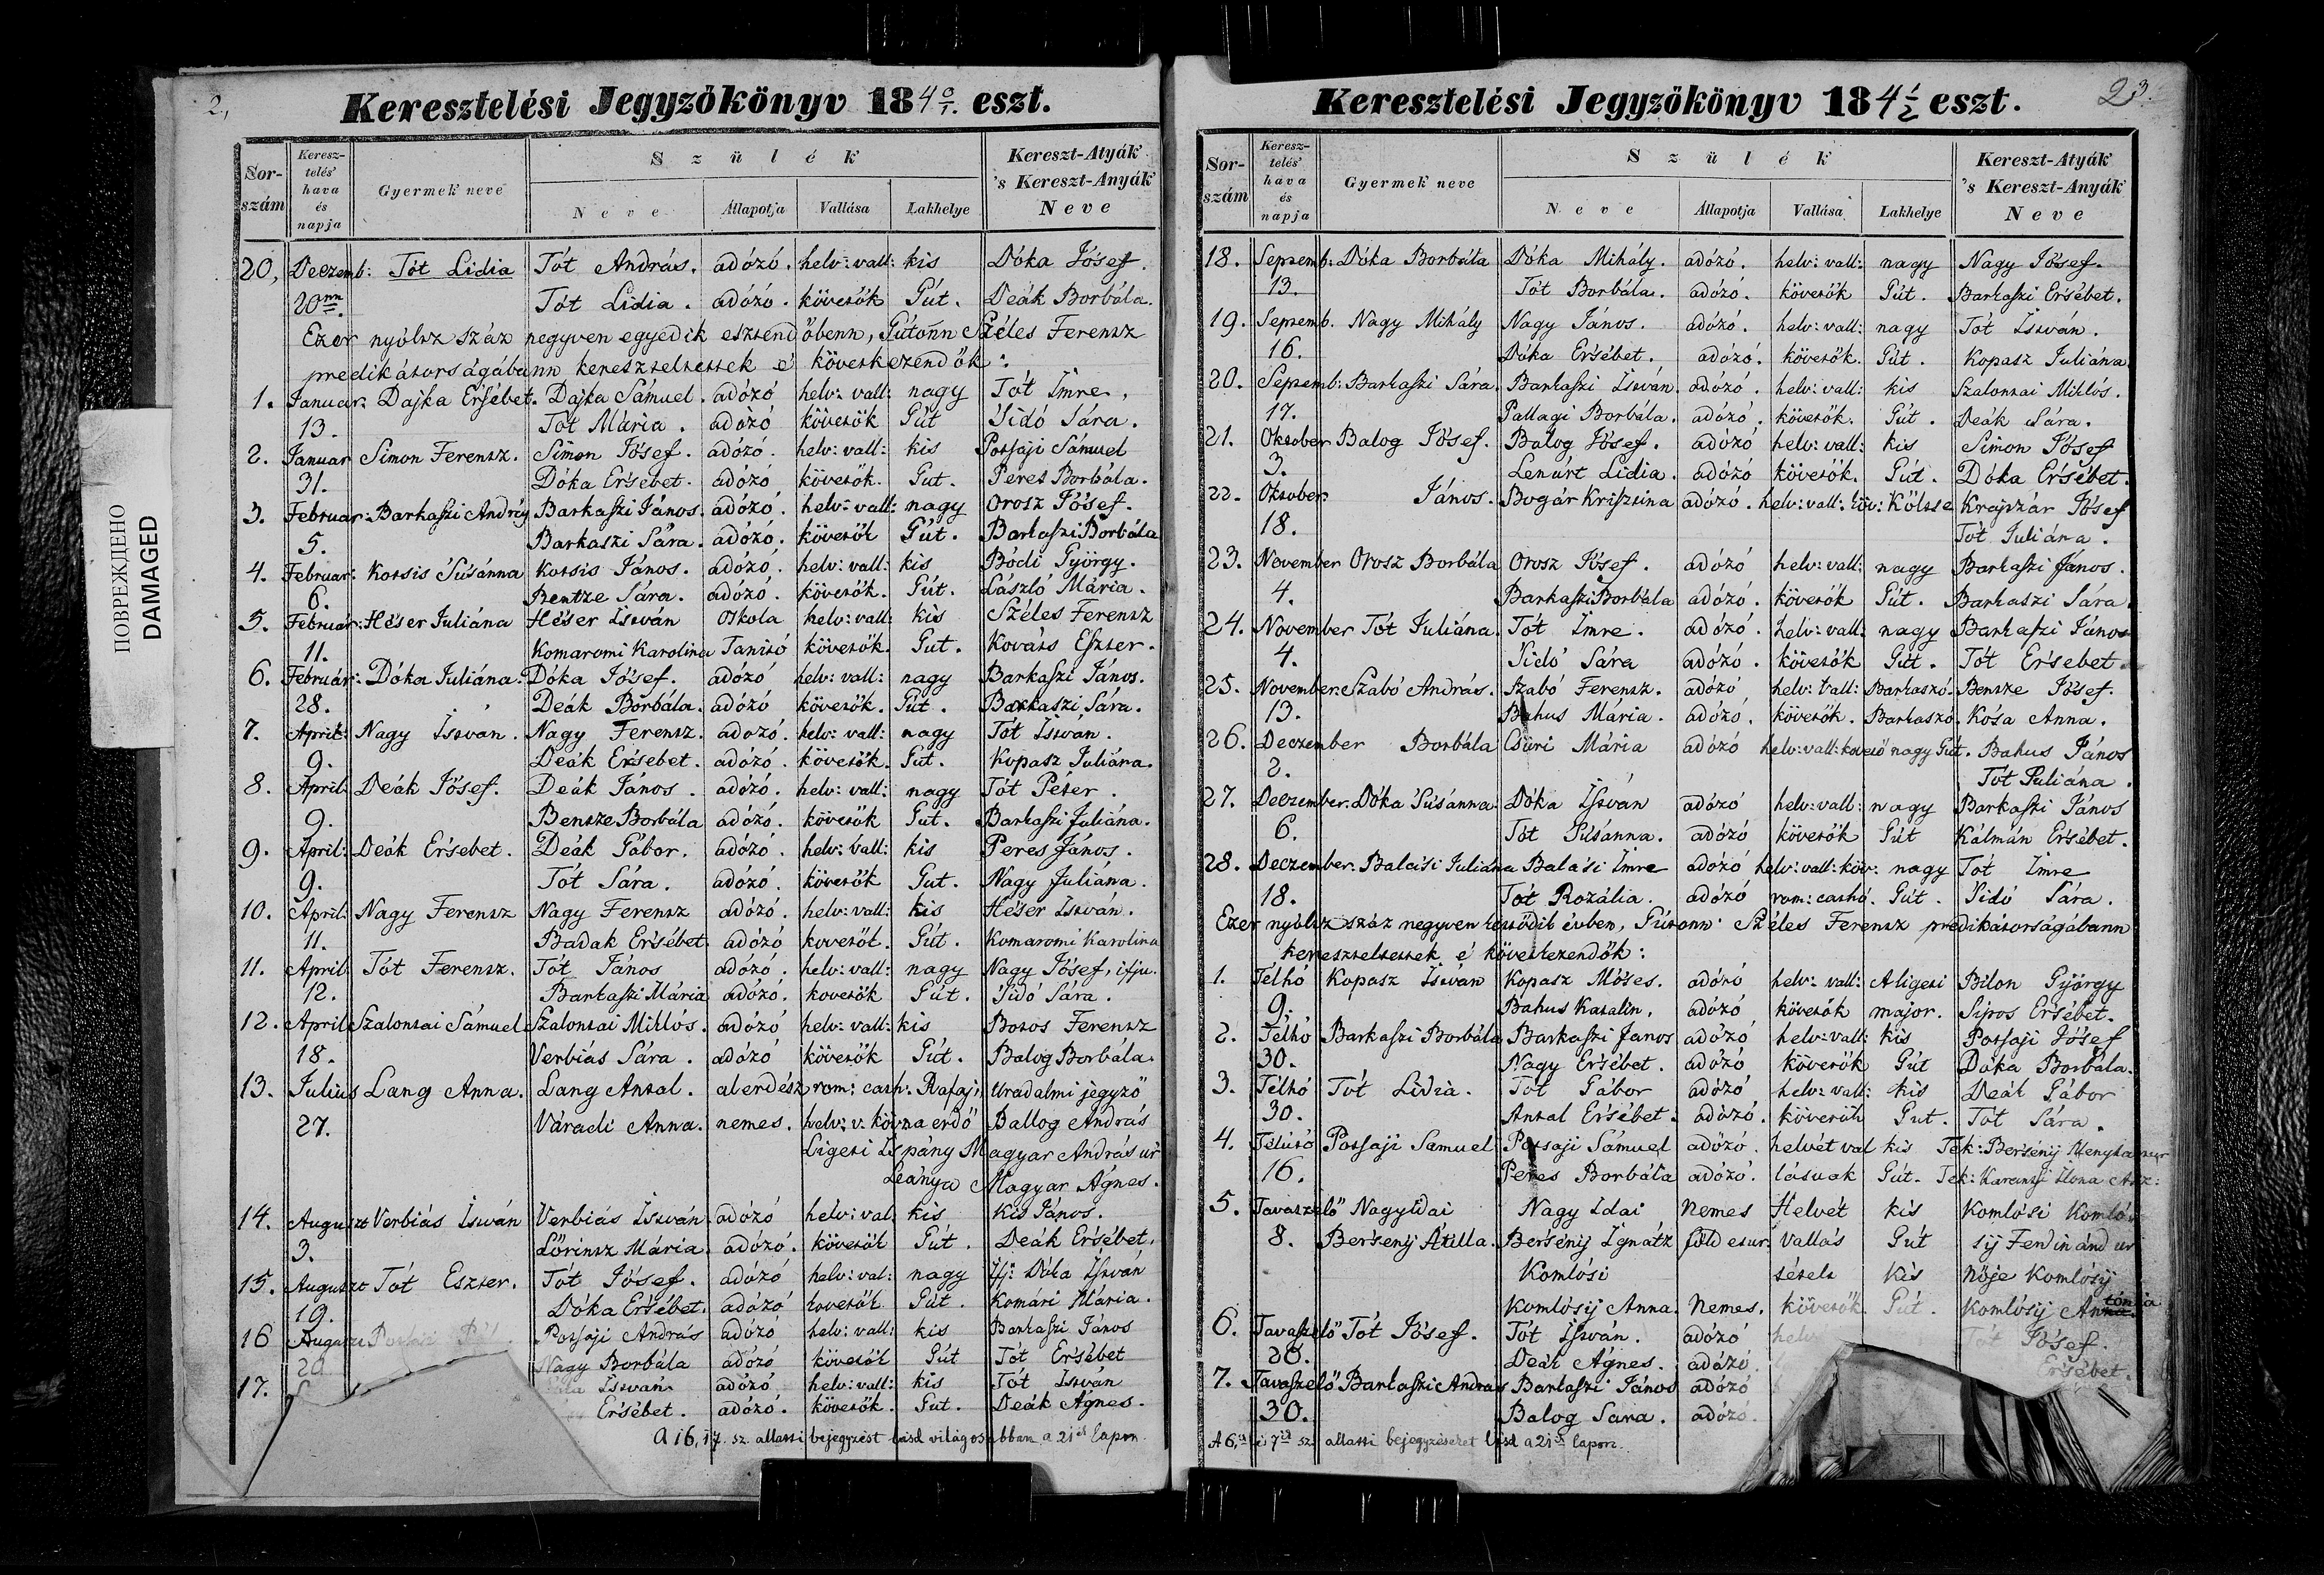 ПОВРЕЖДЕНО
DAMAGED
2,
Keresztelési Jegyzökönyv 184 0/1. eszt.
Sor-szám Keresz-telés' hava és napja Gyermek neve Szülék Kereszt-Atyák 's Kereszt-Anyák Neve
Neve Állapotja Vallása Lakhelye
20, Deczemb: Tót Lidia Tót András. adózó. helv: vall: kis Dóka Jósef.
20. Tót Lidia. adózó. követők Gút. Deák Borbála.
Ezer nyólcz száz negyven egyedik esztendőbenn, Gútonn Széles Ferentz
predikátorságábann kereszteltettek é következendők:
1. Januar: Dajka Ersébet. Dajka Sámuel. adózó helv: vall: nagy Tót Imre,
13. Tót Mária. adózó követők Gút Sidó Sára.
2. Januar Simon Ferentz. Simon Jósef. adózó. helv: vall: kis Potsaji Sámuel
31. Dóka Ersébet. adózó követők. Gut. Peres Borbála.
3. Februar: Barkaszi András Barkaszi János. adózó. helv: vall: nagy Orosz Jósef.
5. Barkaszi Sára. adózó. követők Gút. Barkaszi Borbála
4. Februar: Kotsis Susánna Kotsis János. adózó. helv: vall: kis Bódi György.
6. Bentze Sára. adózó. követők. Gút. László Mária.
5. Február: Héser Juliána Héser István Oskola helv: vall: kis Széles Ferentz
11. Komaromi Karolina Tanitó követők. Gut. Kováts Eszter.
6. Február: Dóka Juliána. Dóka Jósef. adózó helv: vall: nagy Barkaszi János.
28. Deák Borbála. adózó követők. Gút. Barkaszi Sára.
7. April: Nagy István. Nagy Ferentz. adózó. helv: vall: nagy Tót István.
9. Deák Ersebet. adózó. követők. Gut. Kopasz Juliána.
8. April: Deák Jósef. Deák János. adózó. helv: vall: nagy Tót Péter.
9. Bentze Borbála adózó. követők Gut. Barkaszi Juliána.
9. April: Deák Ersebet. Deák Gábor. adózó. helv: vall: kis Peres János.
9. Tót Sára. adózó. követők Gut. Nagy Juliána.
10. April: Nagy Ferentz Nagy Ferentz adózó. helv: vall: kis Héser István.
11. Badak Ersébet. adózó követők. Gút. Komaromi Karolina
11. April: Tót Ferentz. Tót János adózó. helv: vall: nagy Nagy Jósef, ifju.
12. Barkaszi Mária adózó. követők Gút. Sidó Sára.
12. April: Szalontai Sámuel Szalontai Miklós. adózó helv: vall: kis Botos Ferentz
18. Verbiás Sára. adózó követők Gút. Balog Borbála.
13. Julius Lang Anna. Lang Antal. alerdész rom: cath: Rafaj: Uradalmi jegyző
27. Váradi Anna. nemes. helv: v. köv: na erdő Ballog András
Ligeti Ispány Magyar András úr
Leánya Magyar Ágnes.
14. August Verbiás István Verbiás István. adózó helv: val: kis Kis János.
3. Lőrintz Mária. adózó. követők Gút. Deák Ersébet.
15. August Tót Eszter. Tót Jósef. adózó helv: val: nagy Ifj: Dóka István
19. Dóka Ersébet. adózó követők Gút. Komári Mária.
16 August Potsaji András adózó helv: vall: kis Barkaszi János
20 Nagy Borbála adózó követők Gút Tót Ersébet
17. István adózó helv: vall: kis Tót István
Ersébet. adózó. követők. Gut. Deák Ágnes.
A 16, 17. sz. allatti bejegyzést lásd világosabban a 21ik lapon.
23.
Keresztelési Jegyzökönyv 184 1/2 eszt.
Sor-szám Keresz-telés' hava és napja Gyermek neve Szülék Kereszt-Atyák 's Kereszt-Anyák Neve
Neve Állapotja Vallása Lakhelye
18. Septemb: Dóka Borbála Dóka Mihály. adózó. helv: vall: nagy Nagy Jósef.
13. Tót Borbála. adózó. követők Gút. Barkaszi Ersébet.
19. Septemb. Nagy Mihály Nagy János. adózó. helv: vall: nagy Tót István.
16. Dóka Ersébet. adózó. követők. Gút. Kopasz Juliána
20. Septemb: Barkaszi Sára. Barkaszi István. adózó. helv: vall: kis Szalontai Miklós.
17. Pallagi Borbála. adózó. követők. Gút. Deák Sára.
21. Oktober Balog Jósef. Balog Jósef. adózó helv: vall: kis Simon Jósef
3. Lenárt Lidia. adózó követők. Gút. Dóka Ersébet.
22. Oktober: János. Bogár Krisztina adózó. helv: vall: köv: Kóltse Krajczár Jósef
18. Tót Juliána.
23. November Orosz Borbála Orosz Jósef. adózó helv: vall: nagy Barkaszi János.
4. Barkaszi Borbála adózó. követők Gút. Barkaszi Sára.
24. November Tót Juliána. Tót Imre. adózó. helv: vall: nagy Barkaszi János
4. Sidó Sára adózó. követők Gút. Tót Ersebet
25. November: Szabó András. Szabó Ferentz. adózó helv: vall: Barkaszó. Bentze Jósef.
13. Bahus Mária. adózó. követők. Barkaszó. Kósa Anna.
26. Deczember Borbála Csüri Mária adózó helv: vall: követő nagy Gút. Bahus János
2. Tót Juliána.
27. Deczember. Dóka Susánna Dóka István adózó helv: vall: nagy Barkaszi János
6. Tót Susánna. adózó követők Gút Kálmán Ersébet.
28. Deczember. Balási Juliána Balási Imre adózó helv: vall: köv: nagy Tót Imre
18. Tót Rozália. adózó rom: cathó. Gút. Sidó Sára.
Ezer nyólcz száz negyven kettődik évben, Gútonn Széles Ferentz predikátorságábann
kereszteltettek é következendők:
1. Télhó Kopasz István Kopasz Móses. adózó helv: vall: Aligeti Bilon György
9. Bahus Katalin, adózó követők major. Sipos Ersébet.
2. Télhó Barkaszi Borbála Barkaszi Janos adózó helv: vall: kis Potsaji Jósef
30. Nagy Ersébet. adózó követők Gút Dóka Borbála.
3. Télhó Tót Lidia. Tót Gábor adózó helv: vall: kis Deák Gábor
30. Antal Ersébet. adózó. követők Gut. Tót Sára.
4. Télutó Potsaji Samuel Potsaji Sámuel adózó. helvét val kis Tek: Bersényi
16. Peres Borbála adózó. lásuak Gút. Tek: Ilona
5. Tavaszelő Nagyidai Nagy Idai Nemes Helvét kis Komlósi Komló
8. Bersenij Átilla. Bersénij Ignátz föld esur. Vallás Gút sij Ferdinánd ur
Komlósi tételt Kis nője Komlósy
Komlósij Anna. Nemes. követők Gút. Komlósij Antonia
6. Tavaszelő Tót Jósef. Tót István. adózó helv Tót Jósef.
20. Deák Ágnes. adózó. Ersébet.
7. Tavaszelő Barkaszi Andras Barkaszi János adózó
30. Balog Sara. adózó.
A 6ik és 7ik sz. allatti bejegyzéseket lásd a 21ik lapon.